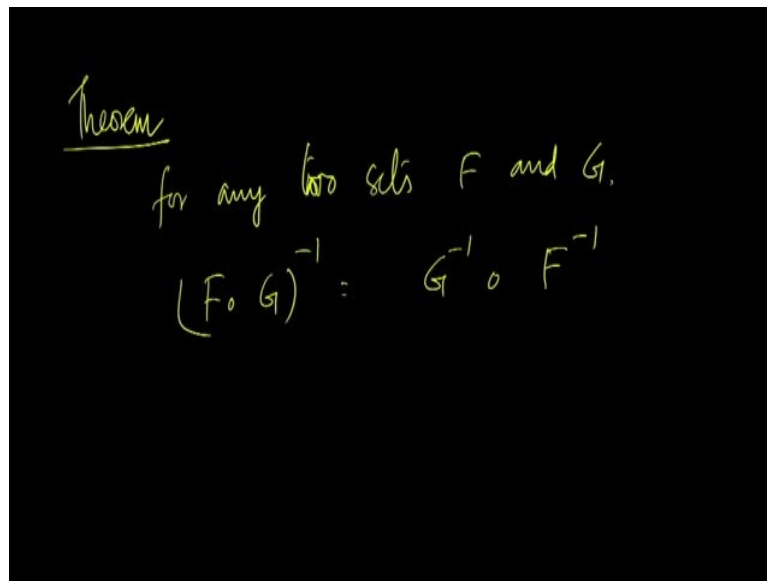 Theorem
for any two sets F and G.
(F∘G)⁻¹ = G⁻¹ ∘ F⁻¹